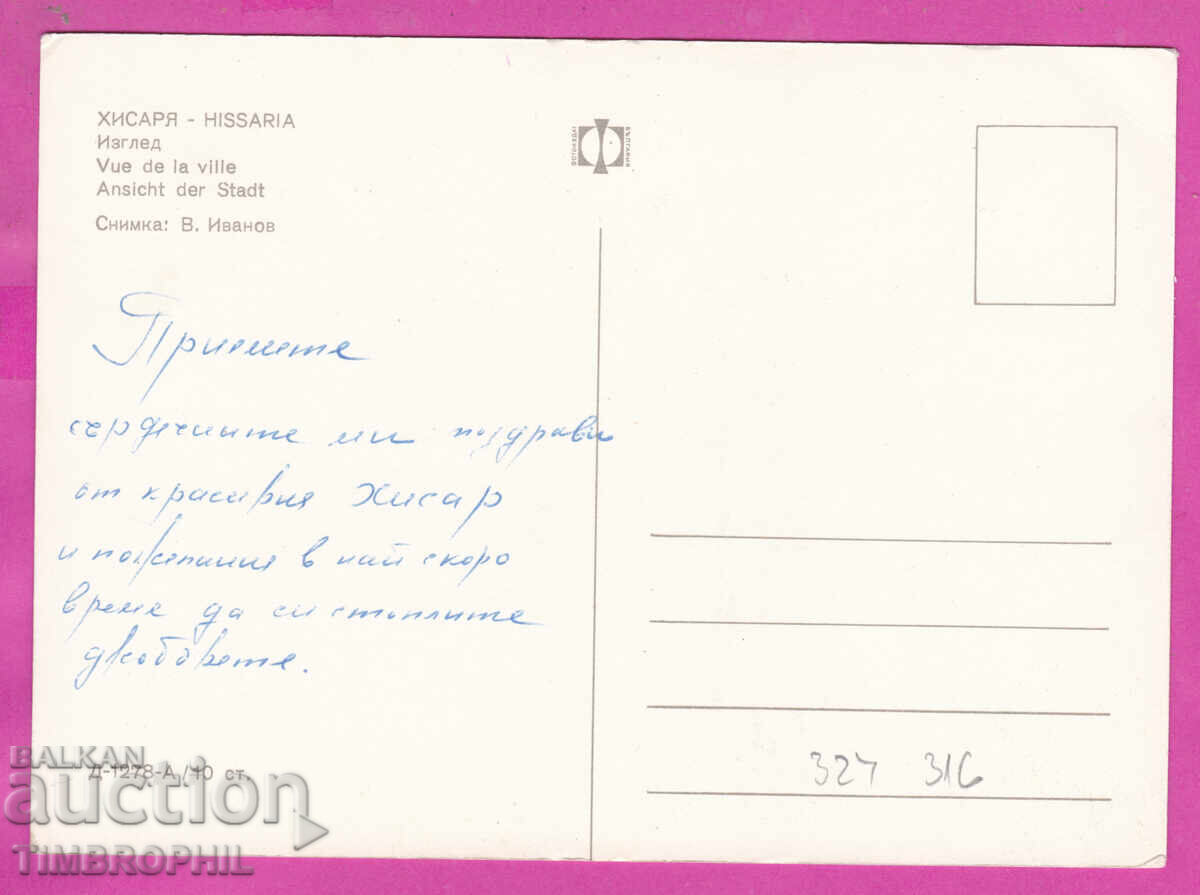 ХИСАРЯ - HISSARIA
Изглед
Vue de la ville
Ansicht der Stadt
Снимка: В. Иванов
ФОТОИЗДАТ
БЪЛГАРИЯ
Приемете
сърдечните ми поздрави
от красивия Хисар
и пожелания в най скоро
време да си стоплите
Д-1278-А /10 ст.
327 316
BALKAN
auction
TIMBROPHIL